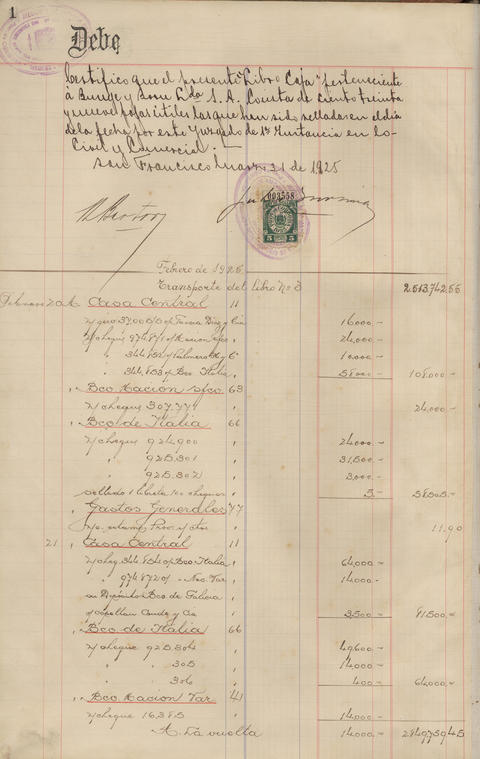 1
Debe
Certifico que el presente "Libro Caja" perteneciente
á Bunge y Born Lda S. A. Consta de ciento treinta
y nueve fojas útiles las que han sido selladas en el día
de la fecha por este Juzgado de 1ª Instancia en lo
Civil y Comercial.
San Francisco Marzo 31 de 1925
003558
5 5
Febrero de 1925
Transporte del Libro No 3 2.513.742.55
Febrero 20 Casa Central 11
16.000.-
24.000.-
10.000.-
" 344.853 of Bco Italia " 58.000.- 108.000.-
" Bco Nacion sfco 63
n/ cheque 307.777 " 24.000.-
" Bco de Italia 66
n/ cheque 924.900 " 24.000.-
" 925.301 " 31.500.-
" 925.302 " 3.000.-
sellado 1 libreta 100 cheques " 5.- 58.505.-
" Gastos Generales 77
11.90
21 " Casa Central 11
n/ cheq. 344.854 of Bco Italia " 64.000.-
" 974.872 of " Nac. Tar 14.000.-
3.500.- 81.500.-
" Bco de Italia 66
n/ cheque 925.304 " 49.600.-
" 305 " 14.000.-
" 306 " 400.- 64.000.-
" Bco Nacion Tar 41
n/ cheque 16.385 14.000.-
A la vuelta 14.000.- 2.849.759.45